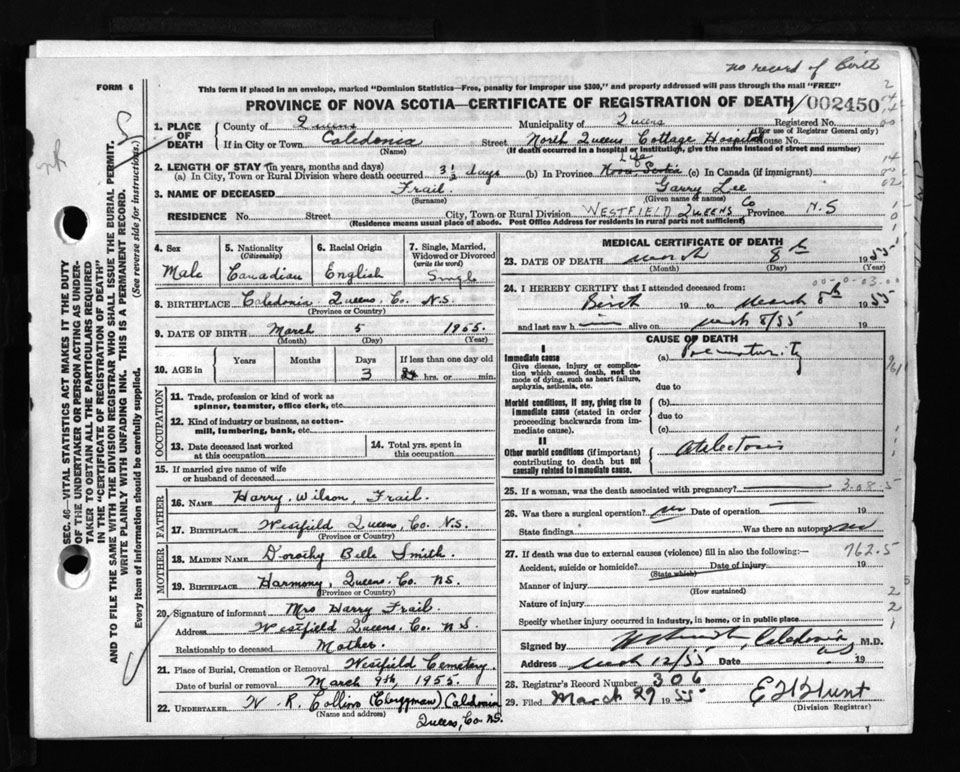 no record of Birth
FORM 6
This form if placed in an envelope, marked "Dominion Statistics—Free, penalty for improper use $300," and properly addressed will pass through the mail "FREE"
PROVINCE OF NOVA SCOTIA—CERTIFICATE OF REGISTRATION OF DEATH 002450
1. PLACE OF DEATH County of Queens Municipality of Queens Registered No.
(For use of Registrar General only)
If in City or Town Caledonia Street North Queens Cottage Hospital House No.
(Name) (If death occurred in a hospital or institution, give the name instead of street and number)
2. LENGTH OF STAY (in years, months and days) Life
(a) In City, Town or Rural Division where death occurred 3½ days (b) In Province Nova Scotia (c) In Canada (if immigrant)
3. NAME OF DECEASED Frail. Garry Lee
(Surname) (Given name or names)
RESIDENCE No. Street City, Town or Rural Division WESTFIELD QUEENS Co Province N.S
(Residence means usual place of abode. Post Office Address for residents in rural parts not sufficient)
4. Sex Male
5. Nationality (Citizenship) Canadian
6. Racial Origin English
7. Single, Married, Widowed or Divorced (write the word) Single
8. BIRTHPLACE Caledonia Queens, Co. N.S.
(Province or Country)
9. DATE OF BIRTH March 5 1955.
(Month) (Day) (Year)
10. AGE in Years Months Days If less than one day old
3 hrs. or min.
OCCUPATION
11. Trade, profession or kind of work as spinner, teamster, office clerk, etc.
12. Kind of industry or business, as cotton-mill, lumbering, bank, etc.
13. Date deceased last worked at this occupation
14. Total yrs. spent in this occupation
15. If married give name of wife or husband of deceased
FATHER
16. NAME Harry. Wilson, Frail.
17. BIRTHPLACE Westfield Queens, Co. N.S.
(Province or Country)
MOTHER
18. MAIDEN NAME Dorothy Bell Smith.
19. BIRTHPLACE Harmony, Queens. Co. N.S.
(Province or Country)
20. Signature of informant Mrs Harry Frail.
Address Westfield Queens, Co. N.S.
Relationship to deceased Mother.
21. Place of Burial, Cremation or Removal Westfield Cemetery.
Date of burial or removal March 9th, 1955.
22. UNDERTAKER W. R. Collins (Clergyman) Caledonia
(Name and address) Queens, Co. N.S.
MEDICAL CERTIFICATE OF DEATH
23. DATE OF DEATH March 8th 1955
(Month) (Day) (Year)
24. I HEREBY CERTIFY that I attended deceased from:
Birth 19 to March 8th 1955
and last saw him alive on March 8/55 19
CAUSE OF DEATH
I
Immediate cause (a) Prematurity
Give disease, injury or complication which caused death, not the mode of dying, such as heart failure, asphyxia, asthenia, etc.
due to
Morbid conditions, if any, giving rise to immediate cause (stated in order proceeding backwards from immediate cause). (b)
due to
(c)
II
Other morbid conditions (if important) contributing to death but not causally related to immediate cause. Atelectasis
25. If a woman, was the death associated with pregnancy? 3.08.5
26. Was there a surgical operation? no Date of operation 19
State findings Was there an autopsy no
27. If death was due to external causes (violence) fill in also the following:— 762.5
Accident, suicide or homicide? Date of injury 19
(State which)
Manner of injury
(How sustained)
Nature of injury
Specify whether injury occurred in industry, in home, or in public place
Signed by Caledonia M.D.
Address March 12/55 Date 19
28. Registrar's Record Number 306
29. Filed March 29 1955 E H Hunt
(Division Registrar)
SEC. 46—VITAL STATISTICS ACT MAKES IT THE DUTY
OF THE UNDERTAKER OR PERSON ACTING AS UNDER-
TAKER TO OBTAIN ALL THE PARTICULARS REQUIRED
IN THE "CERTIFICATE OF REGISTRATION OF DEATH"
AND TO FILE THE SAME WITH THE DIVISION REGISTRAR WHO SHALL ISSUE THE BURIAL PERMIT.
WRITE PLAINLY WITH UNFADING INK. THIS IS A PERMANENT RECORD.
Every item of information should be carefully supplied. (See reverse side for instructions.)